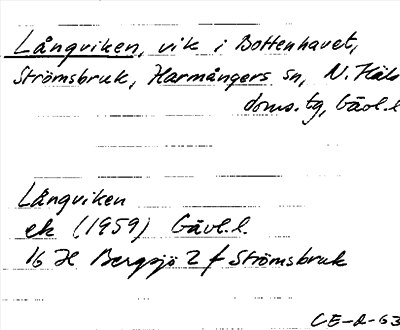 Långviken, vik i Bottenhavet,
Strömsbruk, Harmångers sn, N. Häls
doms. tg, Gävl.l
Långviken
ek (1959) Gävl.l.
16 H Bergsjö 2 f Strömsbruk
CE-d-63